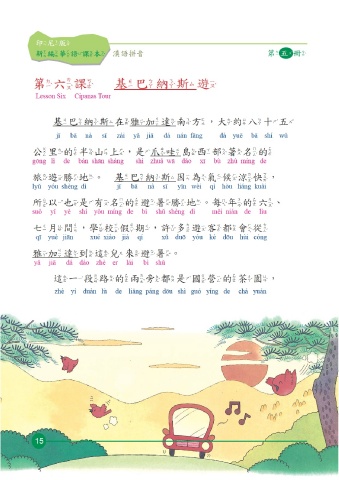 印尼版
新編華語課本 漢語拼音
第五冊
第六課 基巴納斯遊
Lesson Six Cipanas Tour
基巴納斯在雅加達南方，大約八十五
jī bā nà sī zài yǎ jiā dá nán fāng dà yuē bā shí wǔ
公里的半山上，是爪哇島西部著名的
gōng lǐ de bàn shān shàng shì zhuǎ wā dǎo xī bù zhù míng de
旅遊勝地。基巴納斯因為氣候涼快，
lǚ yóu shèng dì jī bā nà sī yīn wèi qì hòu liáng kuài
所以也是有名的避暑勝地。每年的六、
suǒ yǐ yě shì yǒu míng de bì shǔ shèng dì měi nián de liù
七月間，學校假期，許多遊客都會從
qī yuè jiān xué xiào jià qí xǔ duō yóu kè dōu huì cóng
雅加達到這兒來避暑。
yǎ jiā dá dào zhè er lái bì shǔ
這一段路的兩旁都是國營的茶園，
zhè yí duàn lù de liǎng páng dōu shì guó yíng de chá yuán
15